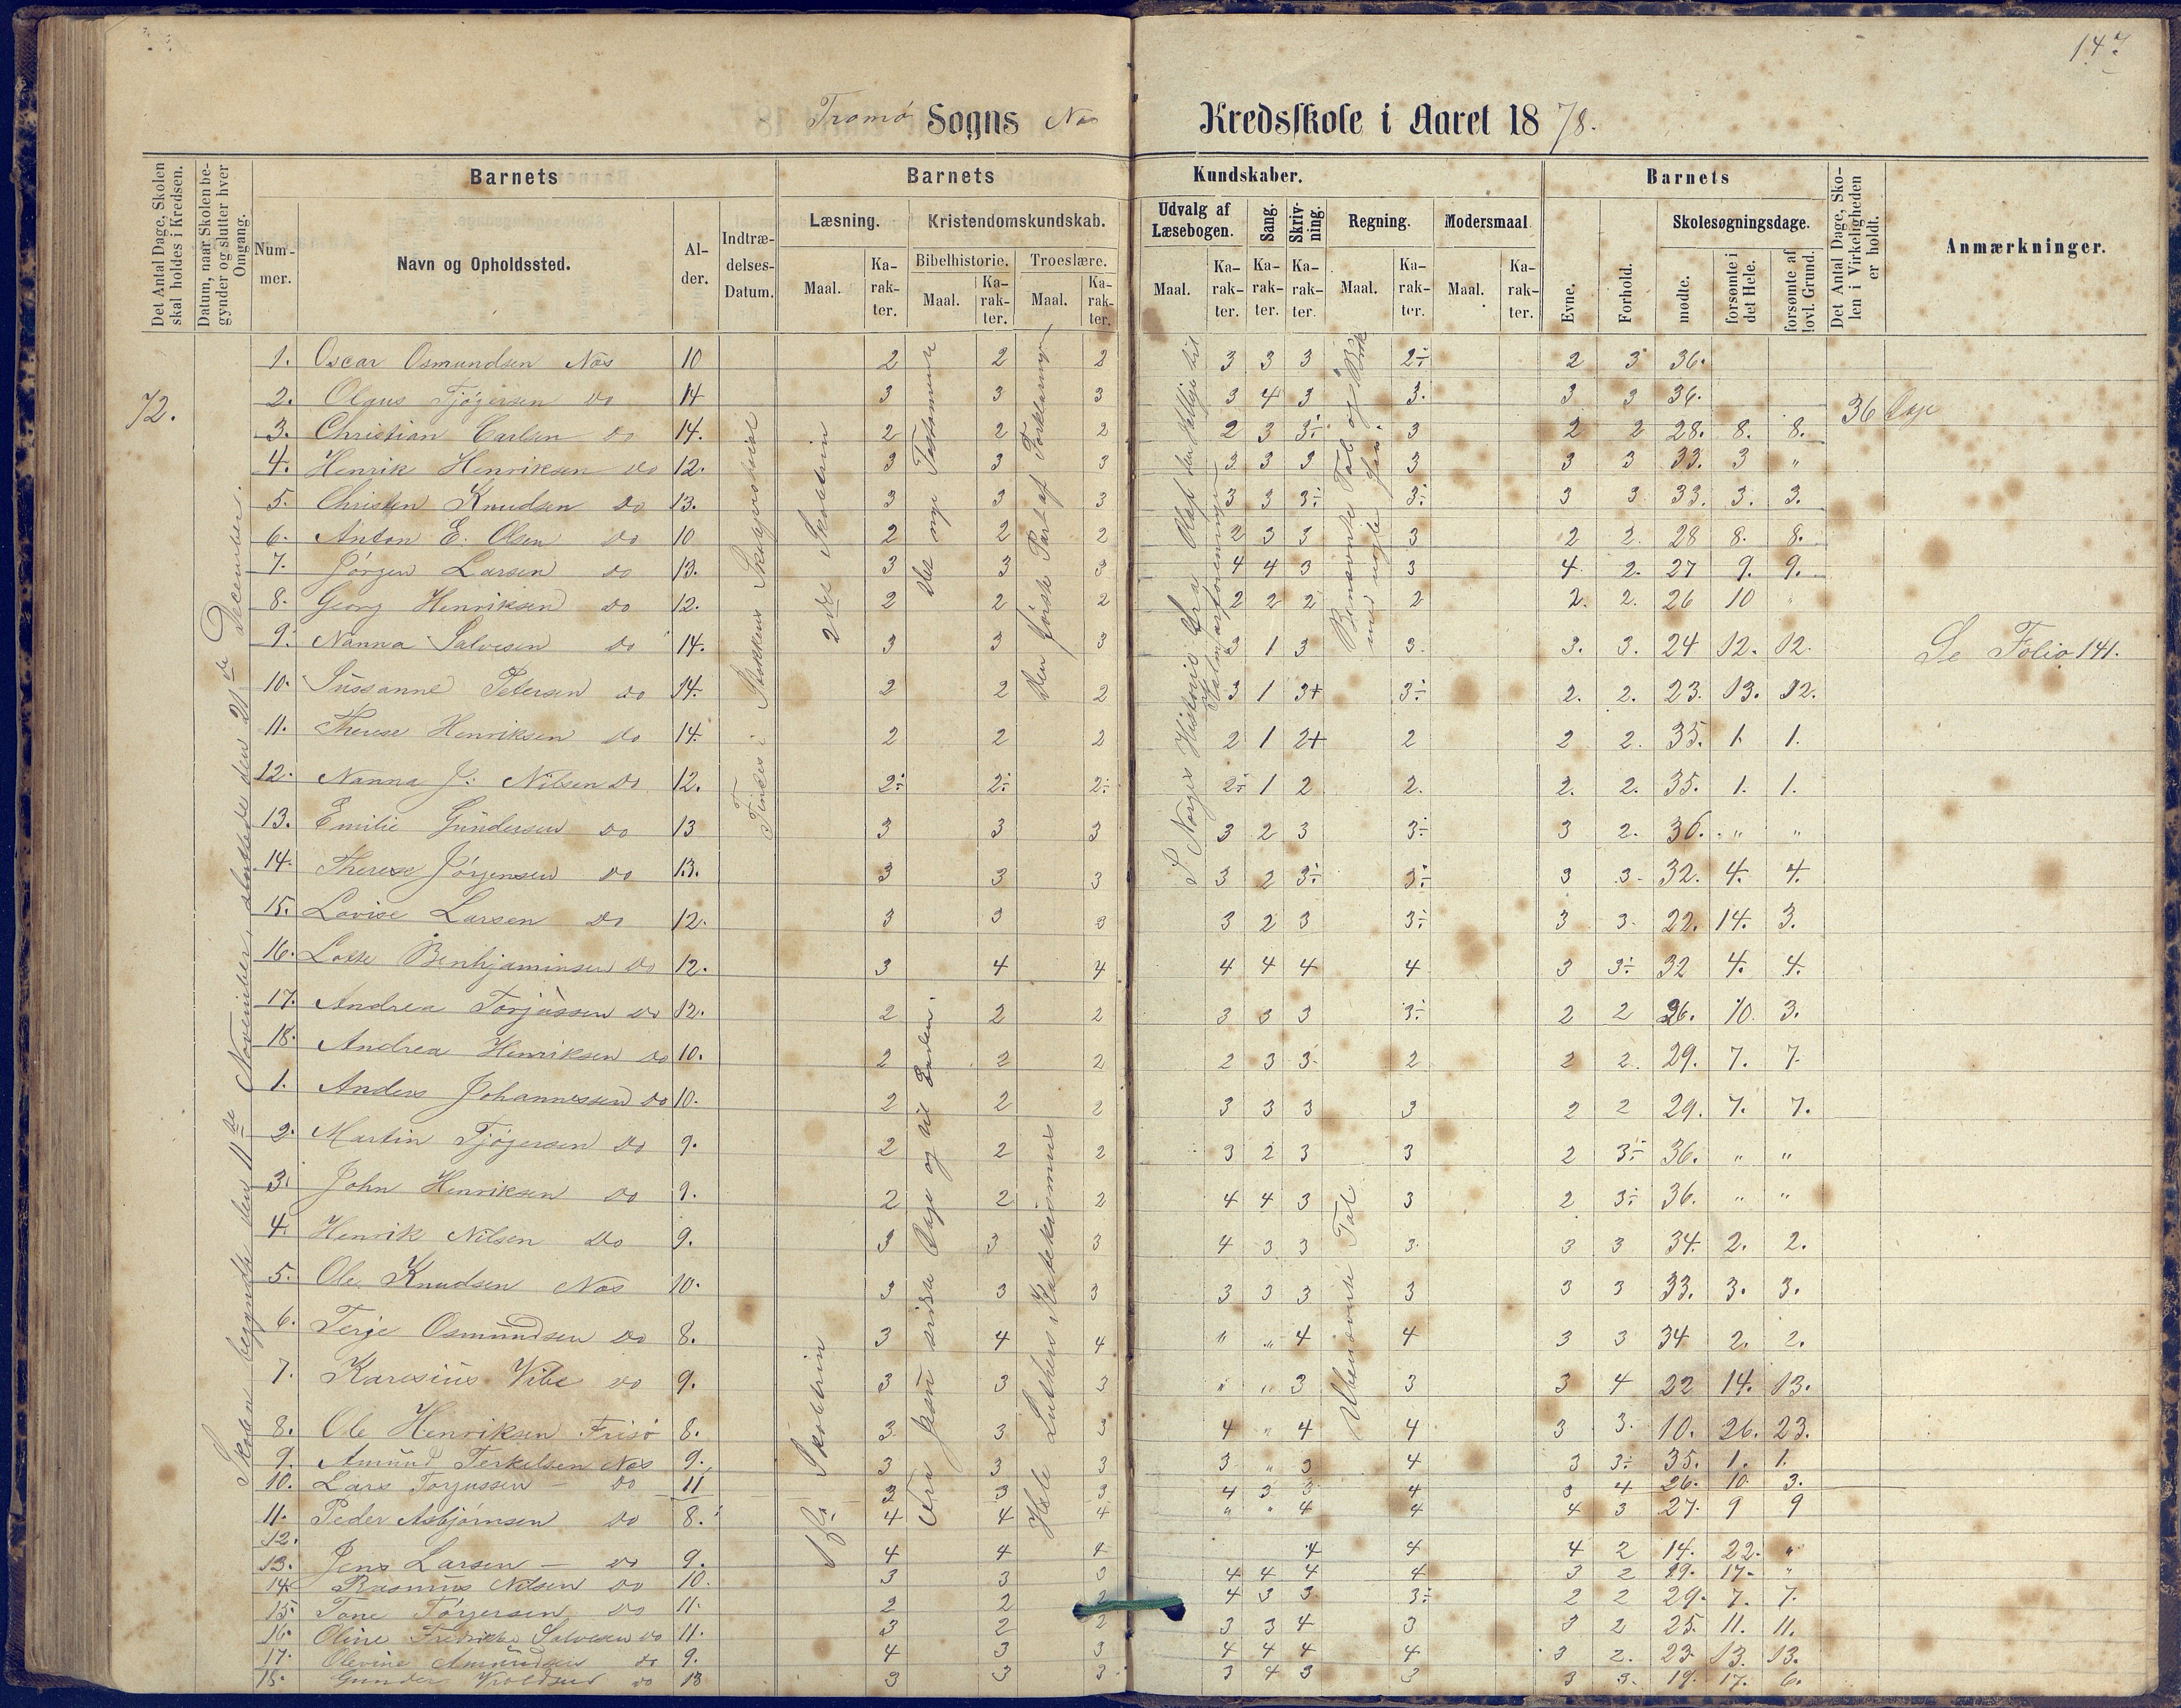 147
Tromø Sogns Nes Kredsskole i Aaret 1878.
Det Antal Dage, Skolen skal holdes i Kredsen.
Datum, naar Skolen begynder og slutter hver Omgang.
Barnets
Nummer.
Navn og Opholdssted.
Alder.
Indtrædelses-Datum.
Barnets Kundskaber.
Læsning.
Maal. Karakter.
Kristendomskundskab.
Bibelhistorie. Troeslære.
Maal. Karakter. Maal. Karakter.
Udvalg af Læsebogen.
Maal. Karakter.
Sang. Karakter.
Skrivning. Karakter.
Regning.
Maal. Karakter.
Modersmaal
Maal. Karakter.
Barnets
Evne. Forhold.
Skolesøgningsdage.
mødte. forsømte i det Hele. forsømte af lovl. Grund.
Det Antal Dage, Skolen i Virkeligheden er holdt.
Anmærkninger.
72.
Skolen begyndte den 11te November, sluttede den 21de December.
Findes i Stokkens Skoleprotokol
2den Skoletrin
Det nye Testamente
Den første Part af Forklaringen
S. Norges Historie fra Olaf den Hellige til Kalmarforeningen
Benævnte Tal og Brøk
36 Dage
Se Folio 141.
1. Oscar Osmundsen Nes 10 2 2 2 3 3 3 2÷ 2 3 36.
2. Olaus Tjøgersen do 14 3 3 3 3 4 3 3. 3 3 36.
3. Christian Carlsen do 14. 2 2 2 2 3 3÷ 3 2 2 28. 8. 8.
4. Henrik Henriksen do 12. 3 3 3 3 3 3 3 3 3 33. 3 "
5. Christen Knudsen do 13. 3 3 3 3 3 3÷ 3÷ 3 3 33. 3. 3.
6. Anton E. Olsen do 10 2 2 2 2 3 3 3 2 2. 28 8. 8.
7. Jørgen Larsen do 13. 3 3 3 4 4 3 3 4 2. 27 9. 9.
8. Georg Henriksen do 12. 2 2 2 2 2 2 2 2. 2. 26 10 "
9. Nanna Salvesen do 14. 3 3 3 3 1 3 3. 3. 3. 24 12. 12.
10. Sussanne Petersen do 14. 2 2 2 3 1 3+ 3÷ 2. 2. 23. 13. 12.
11. Therese Henriksen do 14. 2 2 2 2 1 2+ 2 2 2. 35. 1. 1.
12. Nanna J. Nilsen do 12. 2÷ 2÷ 2÷ 2÷ 1 2 2. 2. 2. 35. 1. 1.
13. Emilie Gundersen do 13 3 3 3 3 2 3 3÷ 3 2. 36. " "
14. Therese Jørgensen do 13. 3 3 3 3 2 3÷ 3÷ 3 3. 32. 4. 4.
15. Lovise Larsen do 12. 3 3 3 3 2 3 3÷ 3 3. 22. 14. 3.
16. Lotte Benhjaminsen do 12. 3 4 4 4 4 4 4 3 3÷ 32 4. 4.
17. Andrea Torjussen do 12. 2 2 2 3 3 3 3÷ 2 2 26. 10. 3.
18. Andrea Henriksen do 10. 2 2 2 2 3 3. 2 2 2. 29. 7. 7.
1ste Skoletrin
Hele Luthers Katekismus
Ubenævnte Tal
1. Anders Johannessen do 10. 2 2 2 3 3 3 3 2 2 29. 7. 7.
2. Martin Tjøgersen do 9. 2 2 2 3 2 3 3 2 3÷ 36. " "
3. John Henriksen do 9. 2 2 2 4 4 3 3 2 3÷ 36. " "
4. Henrik Nilsen do 9. 3 3 3 4 3 3 3. 3 3 34. 2. 2.
5. Ole Knudsen Nes 10. 3 3 3 3 3 3 3 3 3 33. 3. 3.
6. Terje Osmundsen do 8. 3 4 4 " " 4 4 3 3 34 2. 2.
7. Karesius Vibe do 9. 3 3 3 " " 3 3 3 4 22 14. 13.
8. Ole Henriksen Frisø 8. 3 3 3 4 " 4 4 3 3. 10. 26. 23.
9. Amund Terkelsen Nes 9. 3 3 3 3 " 3 4 3 3÷ 35. 1. 1.
10. Lars Torjussen - do 11 3 3 3 4 3 3 4 3 4 26. 10. 3.
11. Peder Asbjørnsen do 8. 4 4 4 " " 4 4 4 3 27. 9 9
12.
13. Jens Larsen - do 9. 4 4 4 4 4 4 2 14. 22. "
14. Rasmus Nilsen do 10. 3 3 3 4 4 4 4 3 2 19. 17. "
15. Tone Tørjersen do 11. 2 2 2 4 3 3 3÷ 2 2 29. 7. 7.
16. Oline Fredrikke Salvesen do 11. 3 2 2 3 3 4 3 3 2 25. 11. 11.
17. Olevine Amundsen do 9. 4 3 3 4 4 4 4 3 2. 23. 13. 13.
18. Gunder do 13 3 3 3 3 4 3 3 3 3. 19. 17. 6.